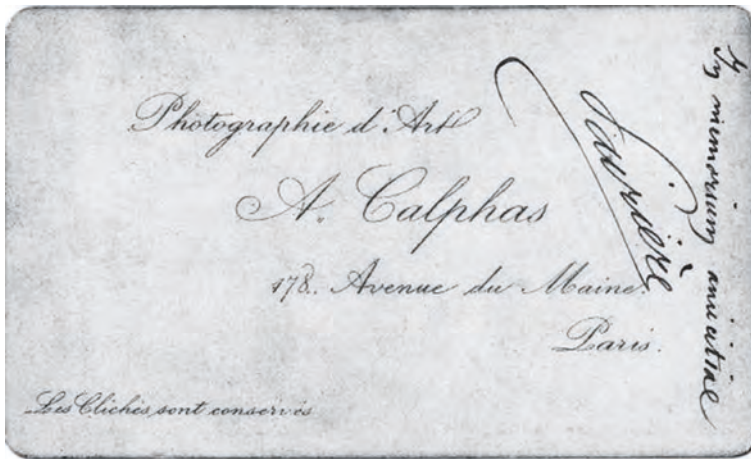 Photographie d'Art
A. Calphas
178. Avenue du Maine.
Paris.
Les Clichés sont conservés
In memorium amicitiae